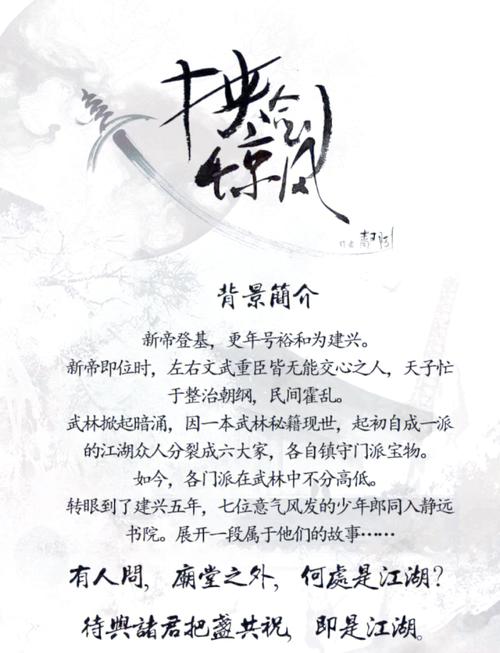 挟剑
惊风
作者
背景簡介
新帝登基，更年号裕和为建兴。
新帝即位时，左右文武重臣皆无能交心之人，天子忙
于整治朝纲，民间霍乱。
武林掀起暗涌，因一本武林秘籍现世，起初自成一派
的江湖众人分裂成六大家，各自镇守门派宝物。
如今，各门派在武林中不分高低。
转眼到了建兴五年，七位意气风发的少年郎同入静远
书院。展开一段属于他们的故事……
有人問，廟堂之外，何處是江湖？
待與諸君把盞共祝，即是江湖。